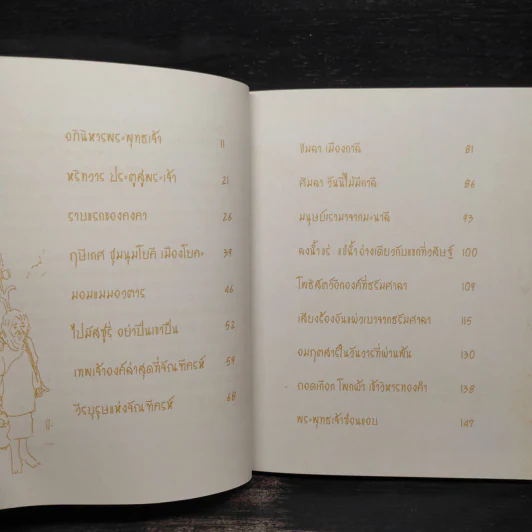 อภินิหารพระพุทธเจ้า 11
หริทวาร ประตูสู่พระเจ้า 21
ราบแรกของคงคา 26
ฤษีเกศ ชุมนุมโยคี เมืองโยคะ 39
มอมแมมอวตาร 46
ไปมัสซูรี อย่าปีนเขาปืน 52
เทพเจ้าองค์ล่าสุดที่จัณฑีครห์ 59
วีรบุรุษแห่งจัณฑีครห์ 68
ชิมลา เมืองกาลี 81
ศิมลา วันนี้ไม่มีกาลี 86
มนุษย์เรามาจากมะนาลี 93
ลงน้ำแร่ แช่น้ำอ่างเดียวกับแขกที่วศิษฐ์ 100
โพธิสัตว์อีกองค์ที่ธรัมศาลา 109
เสียงร้องอันแผ่วเบาจากธรัมศาลา 115
อมฤตสาร์ในวันวารที่ผ่านพ้น 130
ถอดเกือก โพกผ้า เข้าวิหารทองคำ 138
พระพุทธเจ้าซ่อนแอบ 147